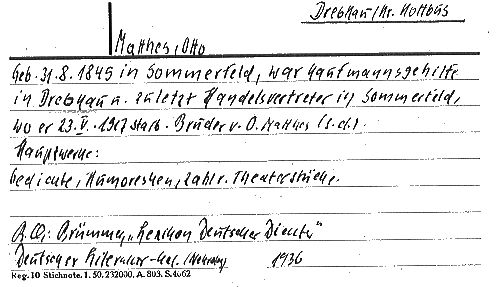 Drebkau/Kr. Kottbus
Matthes, Otto
Geb. 31.8.1845 in Sommerfeld, war Kaufmannsgehilfe
in Drebkau u. zuletzt Handelsvertreter in Sommerfeld,
wo er 23.V.1917 starb. Bruder v. O. Matthes (s.d.).
Hauptwerke:
Gedichte, Humoresken, zahlr. Theaterstücke.
Brümmer, „Lexikon Deutscher Dichter"
Deutscher Literatur-Kal. 1936
Reg. 10 Stichnote. 1. 50. 232000, A. 803. S. 4062